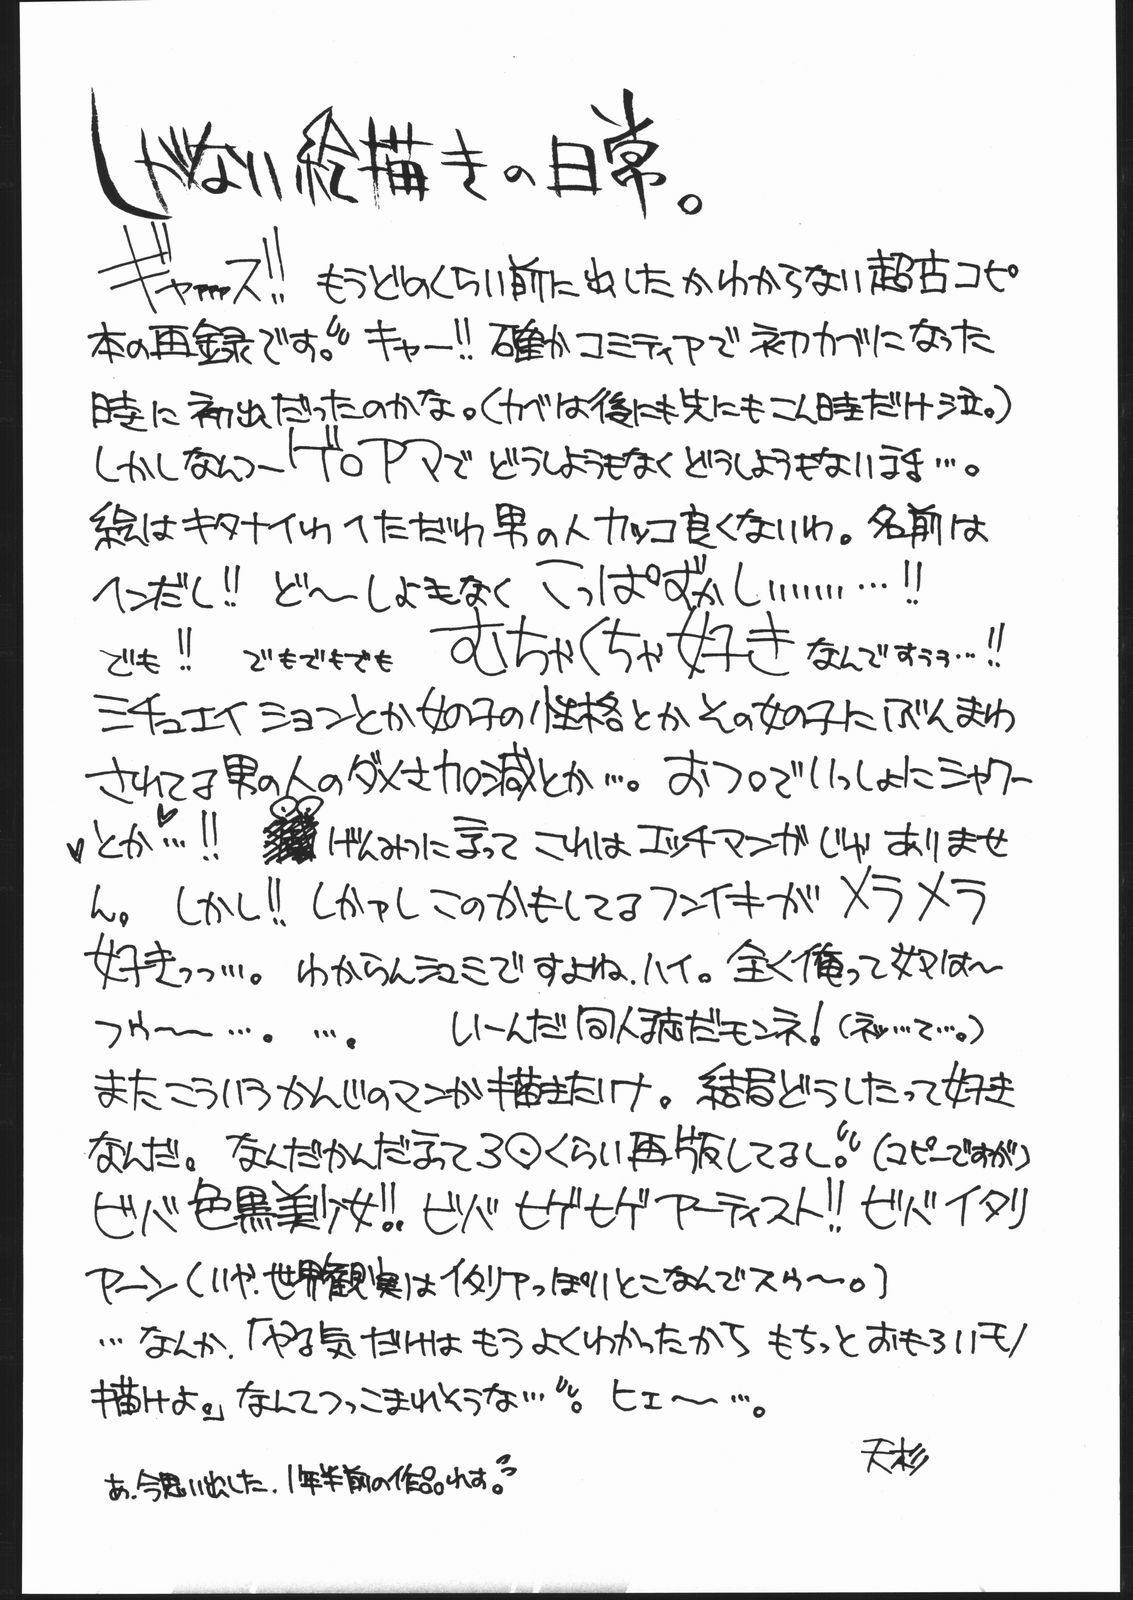 しがない絵描きの日常。
ギャァァァス!! もうどのくらい前に出したかわからない超古コピ
本の再録です。キャー!! 確かコミティアで初カブになった
時に初出だったのかな。(カベは後にも先にもこん時だけ泣。)
しかしなんつーゲロアマでどうしようもなくどうしようもない 。
絵はキタナイわヘただわ男の人カッコ良くないわ。名前は
ヘンだし!! ど〜しよもなく こっぱずかし………!!
でも!! でもでもでも むちゃくちゃ好きなんですぅぅ…!!
シチュエイションとか女の子の性格とかその女の子にぶんまわ
されてる男の人のダメさ加減とか…。おフロでいっしょにシャワー
とか…!! げんみつに言ってこれはエッチマンガじゃありませ
ん。しかし!! しかァしこのかもしてるフンイキがメラメラ
好きっっ…。わからんシュミですよね、ハイ。全く俺って奴は〜
フゥ〜〜…。…。 いーんだ同人誌だモンネ!(ネッ…て…。)
またこういうかんじのマンガ描きたいナ。結局どうしたって好き
なんだ。なんだかんだ言って30くらい再版してるし。(コピーですが)
ビバ色黒美少女!! ビバヒゲヒゲアーティスト!! ビバイタリ
アーン(いや、世界観実はイタリアっぽいとこなんでスゥ〜。)
…なんか、「やる気だけはもうよくわかったからもちっとおもろいモノ
描けよ。」なんてつっこまれそうな…。ヒェ〜…。
天杉
あ、今思い出した、1年半前の作品れす。